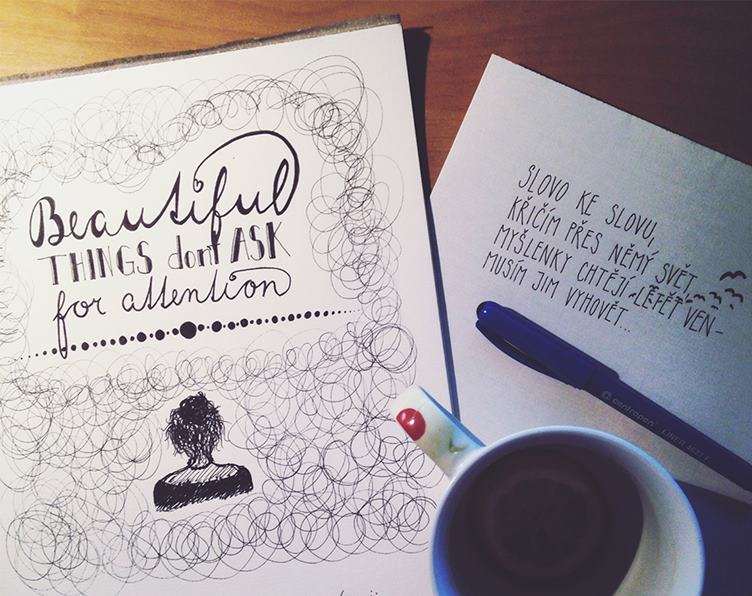 Beautiful
THINGS don't ASK
for attention
SLOVO KE SLOVU,
KŘIČÍM PŘES NĚMÝ SVĚT
MYŠLENKY CHTĚJÍ LETĚT VEN-
MUSÍM JIM VYHOVĚT...
centropen LINER 4621 F